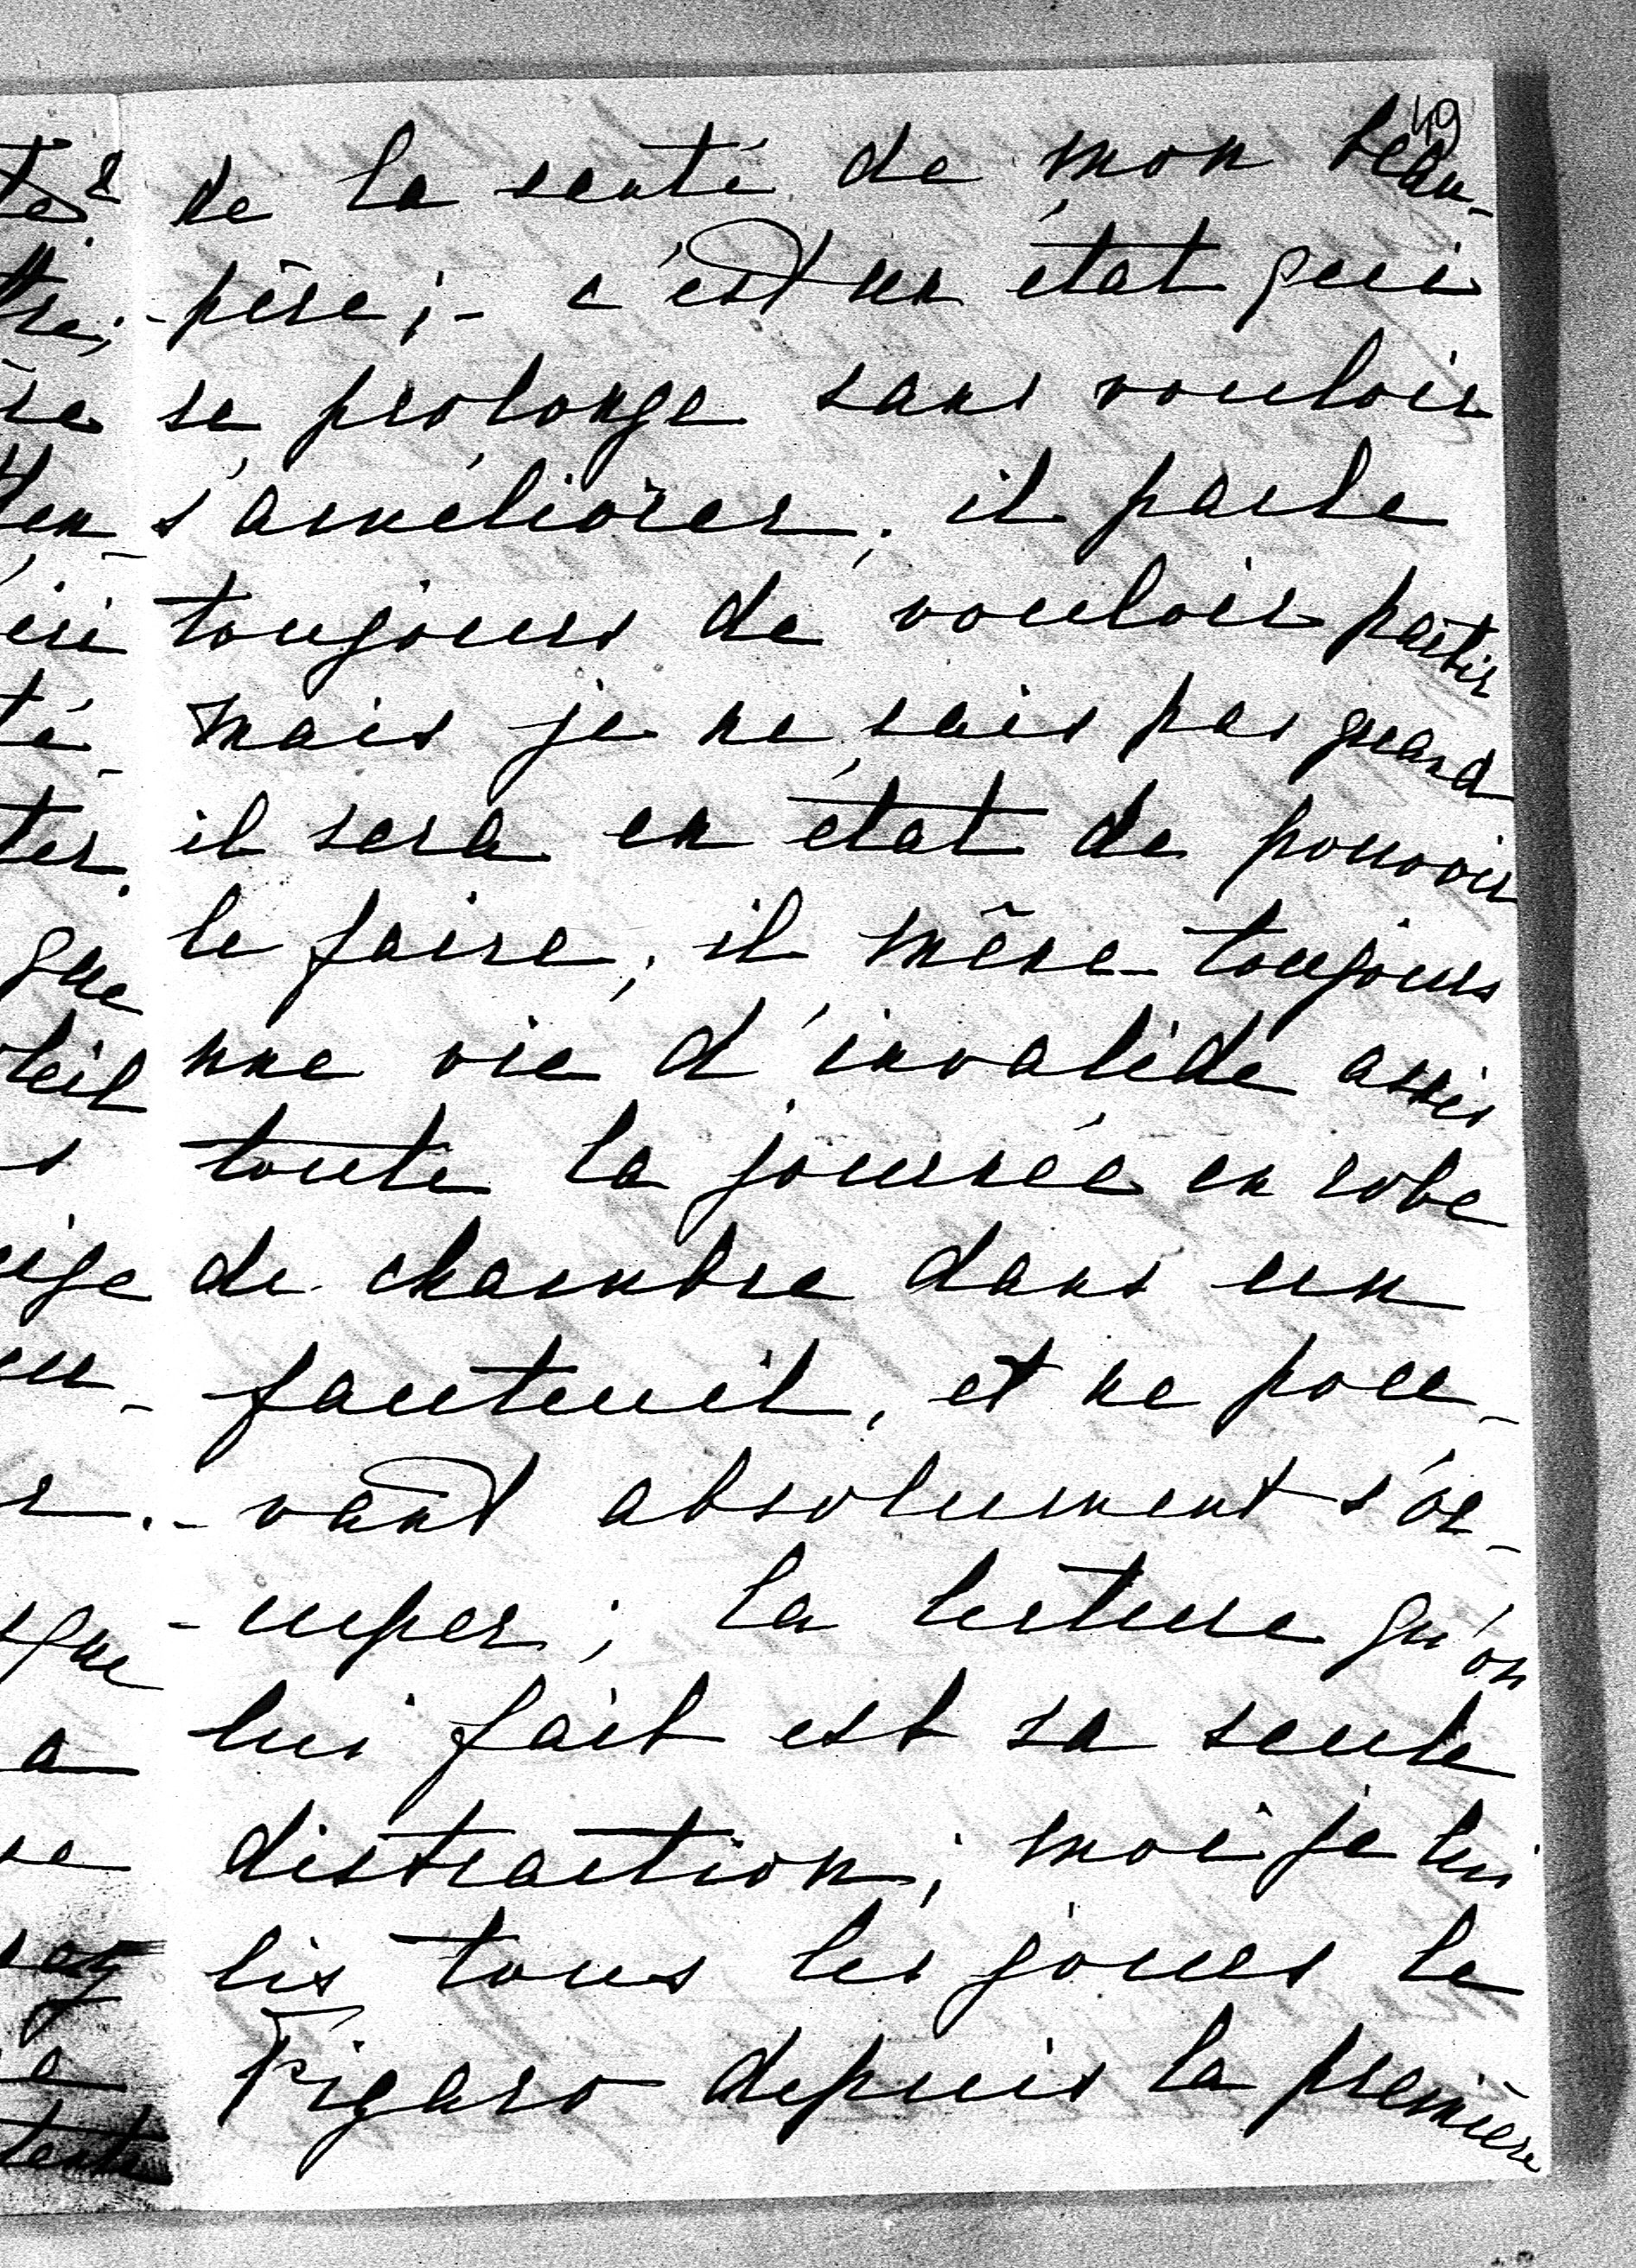 49
de la santé de mon beau-
-père ;- c'est un état qui
se prolonge sans vouloir
s'améliorer ; il parle
toujours de vouloir partir
mais je ne sais pas quand
il sera en état de pouvoir
le faire ; il mène toujours
une vie d'invalide assis
toute la journée en robe
de chambre dans un
fauteuil, et ne pou-
-vant absolument s'oc-
-cuper ; la lecture qu'on
lui fait est sa seule
distraction ; moi je lui
lis tous les jours le
Figaro depuis la première